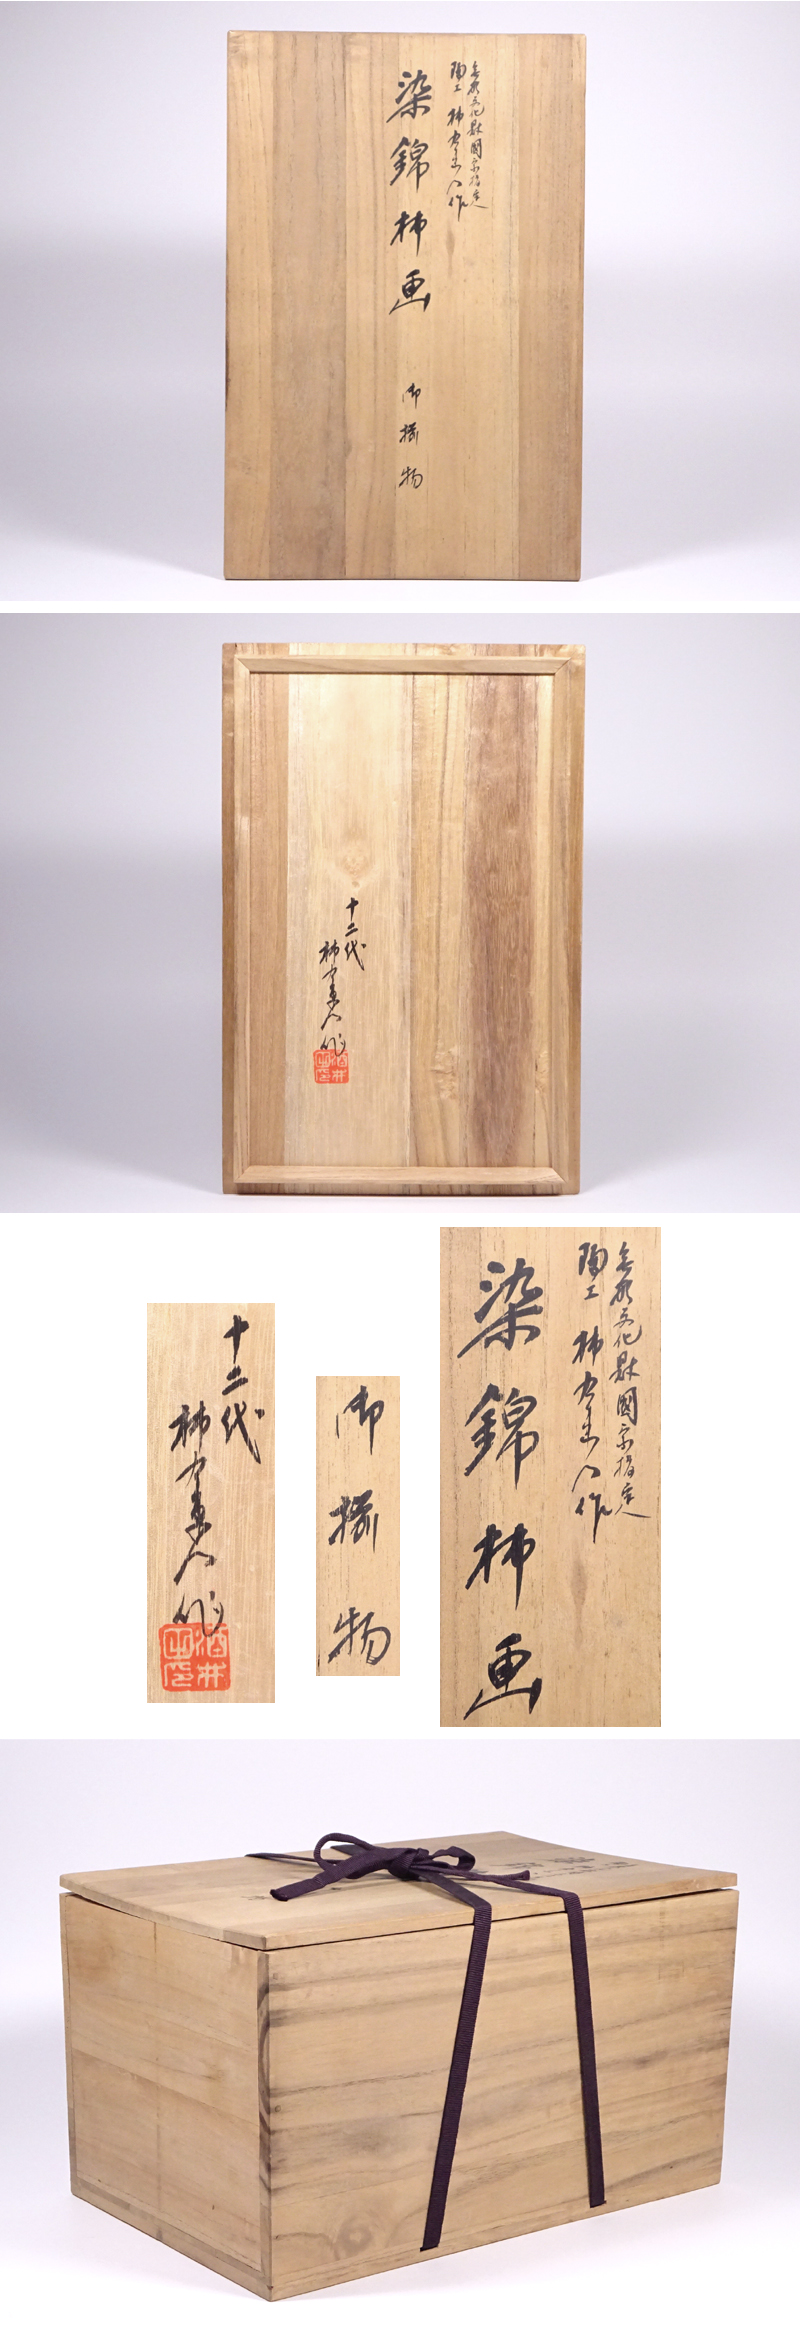 無形文化財國家指定
陶工 柿右衛門作
染錦柿画
御揃物
十二代
柿右衛門作
酒井
十二代
柿右衛門作
酒井
御揃物
無形文化財國家指定
陶工 柿右衛門作
染錦柿画